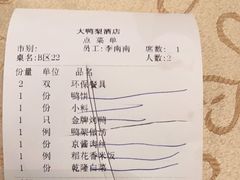 大鸭梨酒店
点菜单
市别: 员工:李南南 席数: 1
桌名:B区22 人数:2
份量 单位 品名
2 双 环保餐具
1 份 鸭饼
1 份 小料
1 只 金牌烤鸭
1 例 鸭架做汤
1 份 京酱肉丝
1 例 稻花香米饭
1 份 乾隆白菜